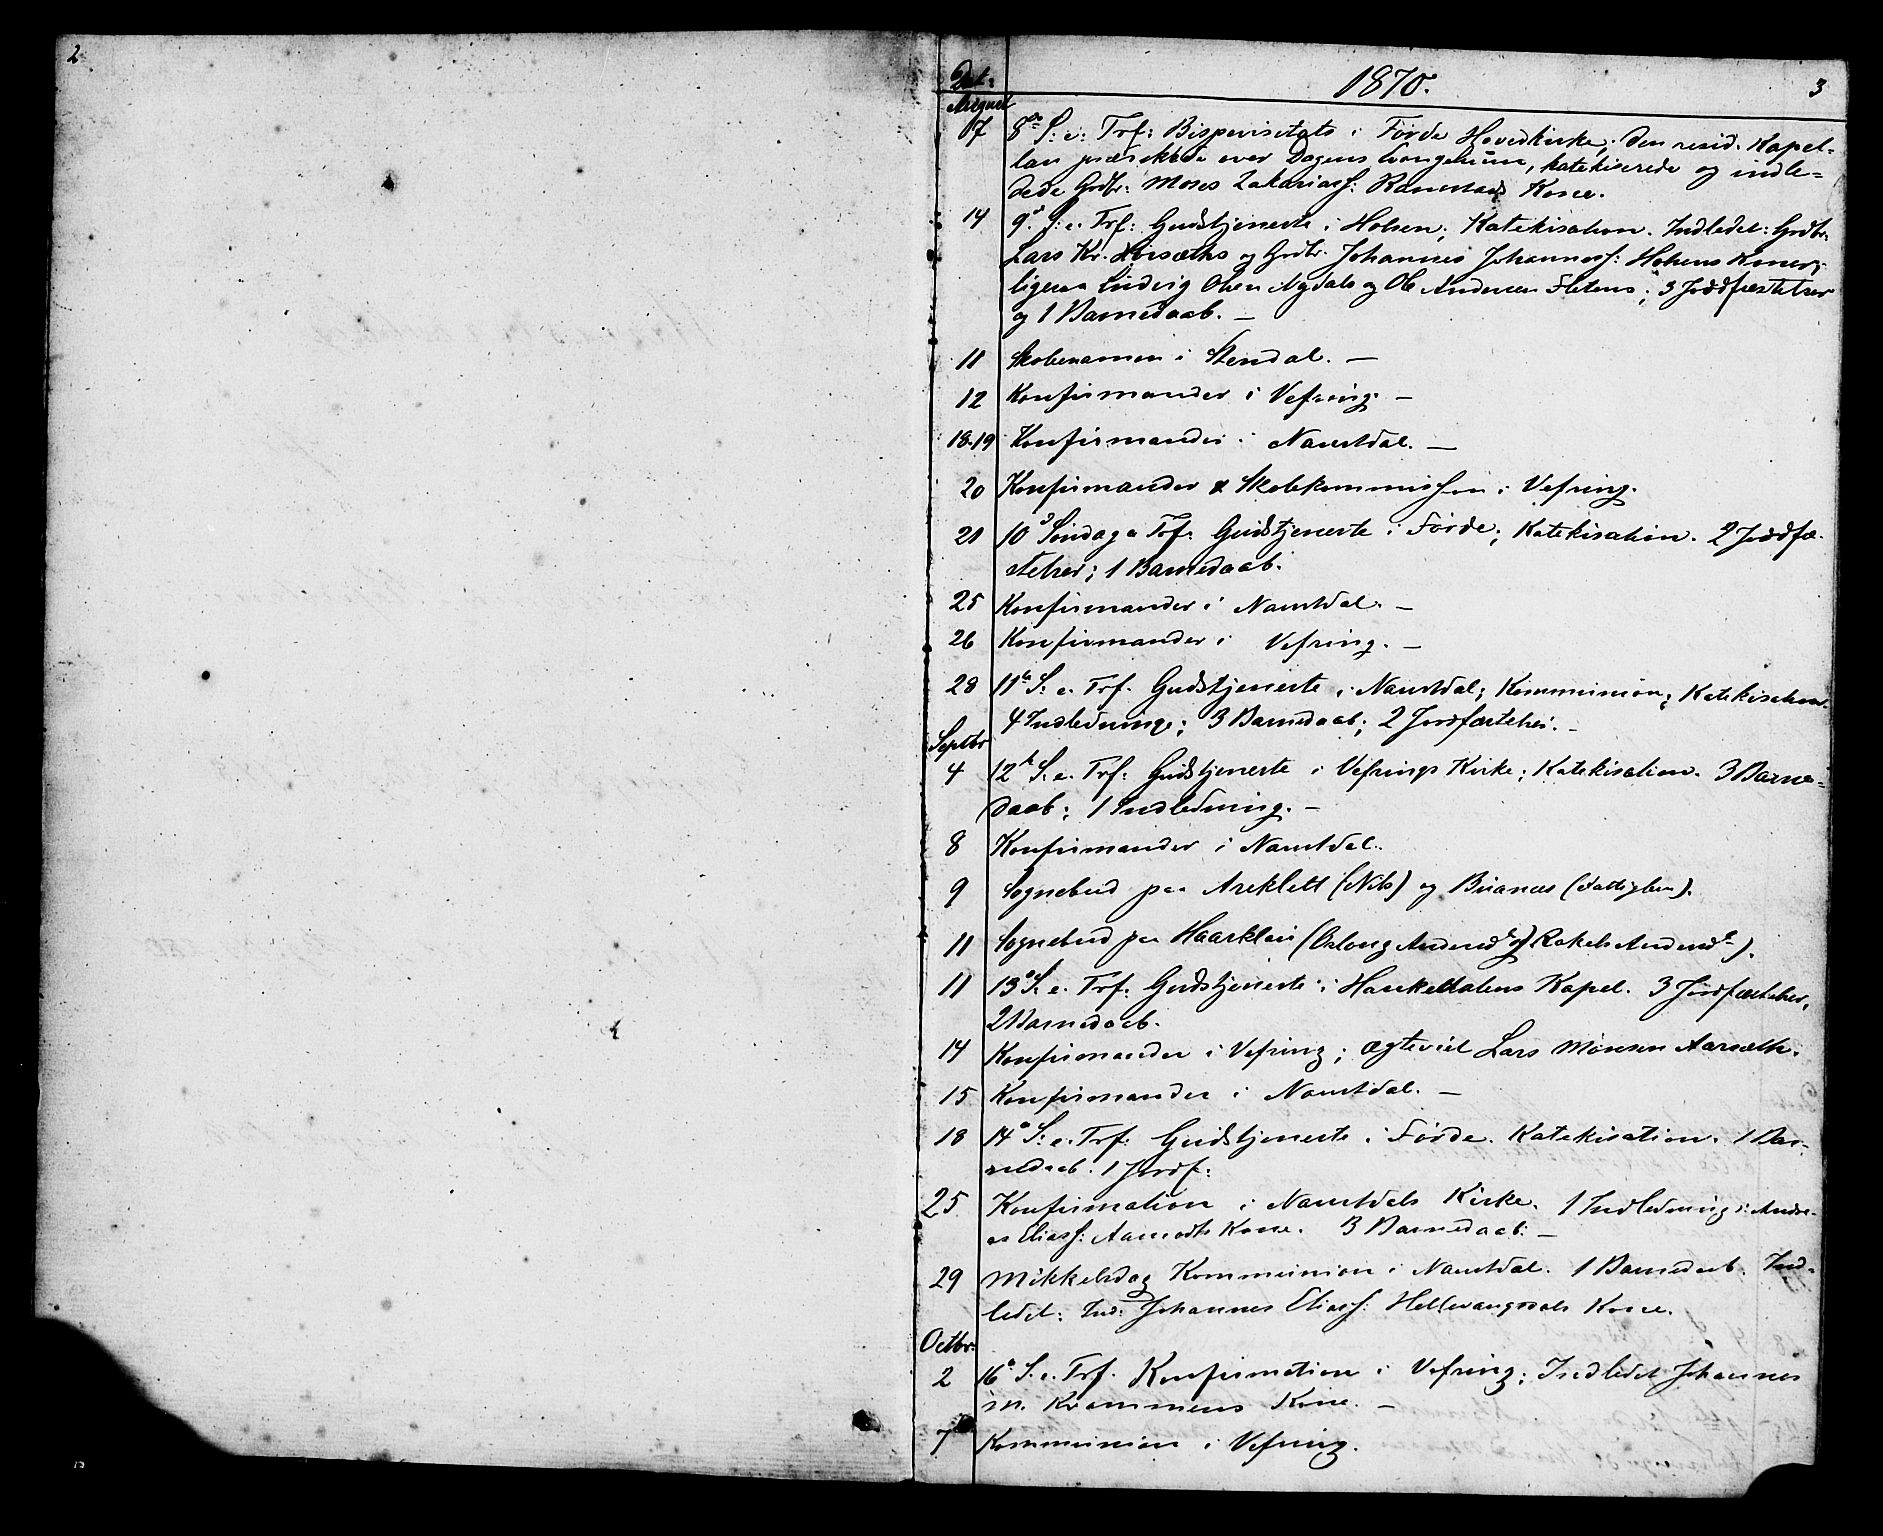 2
Dat:
1870.
3
August
7 8de S: e: Trf: Bispevisitats i Førde Hovedkirke; den resid. Kapel-
lan prækede over Dagens Evangelium, katekiserede og indle-
dede Grdbr: Moses Zakariass: Ramstads Kone.
14 9d S: e. Trf: Gudstjeneste i Holsen; Katekisation. Indledet: Grdbr:
Lars Kr. og Grdbr. Johannes Johanness: Holsens Koner;
ligesaa Ludvig Olsen Nydals og Ole Andersen Fletens; 3 Jordfæstelser
og 1 Barnedaab. —
11 Skolexamen i Stendal. —
12 Konfirmander i Vefring. —
18.19 Konfirmander i Naustdal. —
20 Konfirmander & Skolekommission i Vefring.
21 10d Søndag e Trf. Gudstjeneste i Førde; Katekisation. 2 Jordfæ-
stelser; 1 Barnedaab.
25 Konfirmander i Naustdal. —
26 Konfirmander i Vefring. —
28 11te S: e. Trf. Gudstjeneste i Naustdal; Kommunion; Katekisation.
4 Indledninge; 3 Barnedaab; 2 Jordfæstelser. —
Septbr
4 12te S. e. Trf: Gudstjeneste i Vefrings Kirke; Katekisation. 3 Barne-
daab; 1 Indledning. —
8 Konfirmander i Naustdal.
9 Sognebud paa Areklett (Nils) og Buanes (Fattiglem).
11 Sognebud paa Haarklau (Oslaug Andersd. og Rakel Andersd.).
11 13d S. e. Trf: Gudstjeneste i Haukedalens Kapel. 3 Jordfæstelser,
2 Barnedaab.
14 Konfirmander i Vefring; ægteviet Lars Monsen Aarsæth.
15 Konfirmander i Naustdal. —
18 14d S: e. Trf: Gudstjeneste i Førde. Katekisation. 1 Bar-
nedaab. 1 Jordf:
25 Konfirmation i Naustdals Kirke. 1 Indledning: Andre-
as Eliass: Aamodts Kone. 3 Barnedaab. —
29 Mikkelsdag Kommunion i Naustdal. 1 Barnedaab. Ind-
ledet: Ind: Johannes Eliass: Hellevangsdals Kone.
Octbr:
2 16d S. e. Trf. Konfirmation i Vefring; Indledet Johannes
M. Krammens Kone. —
7 Kommunion i Vefring.